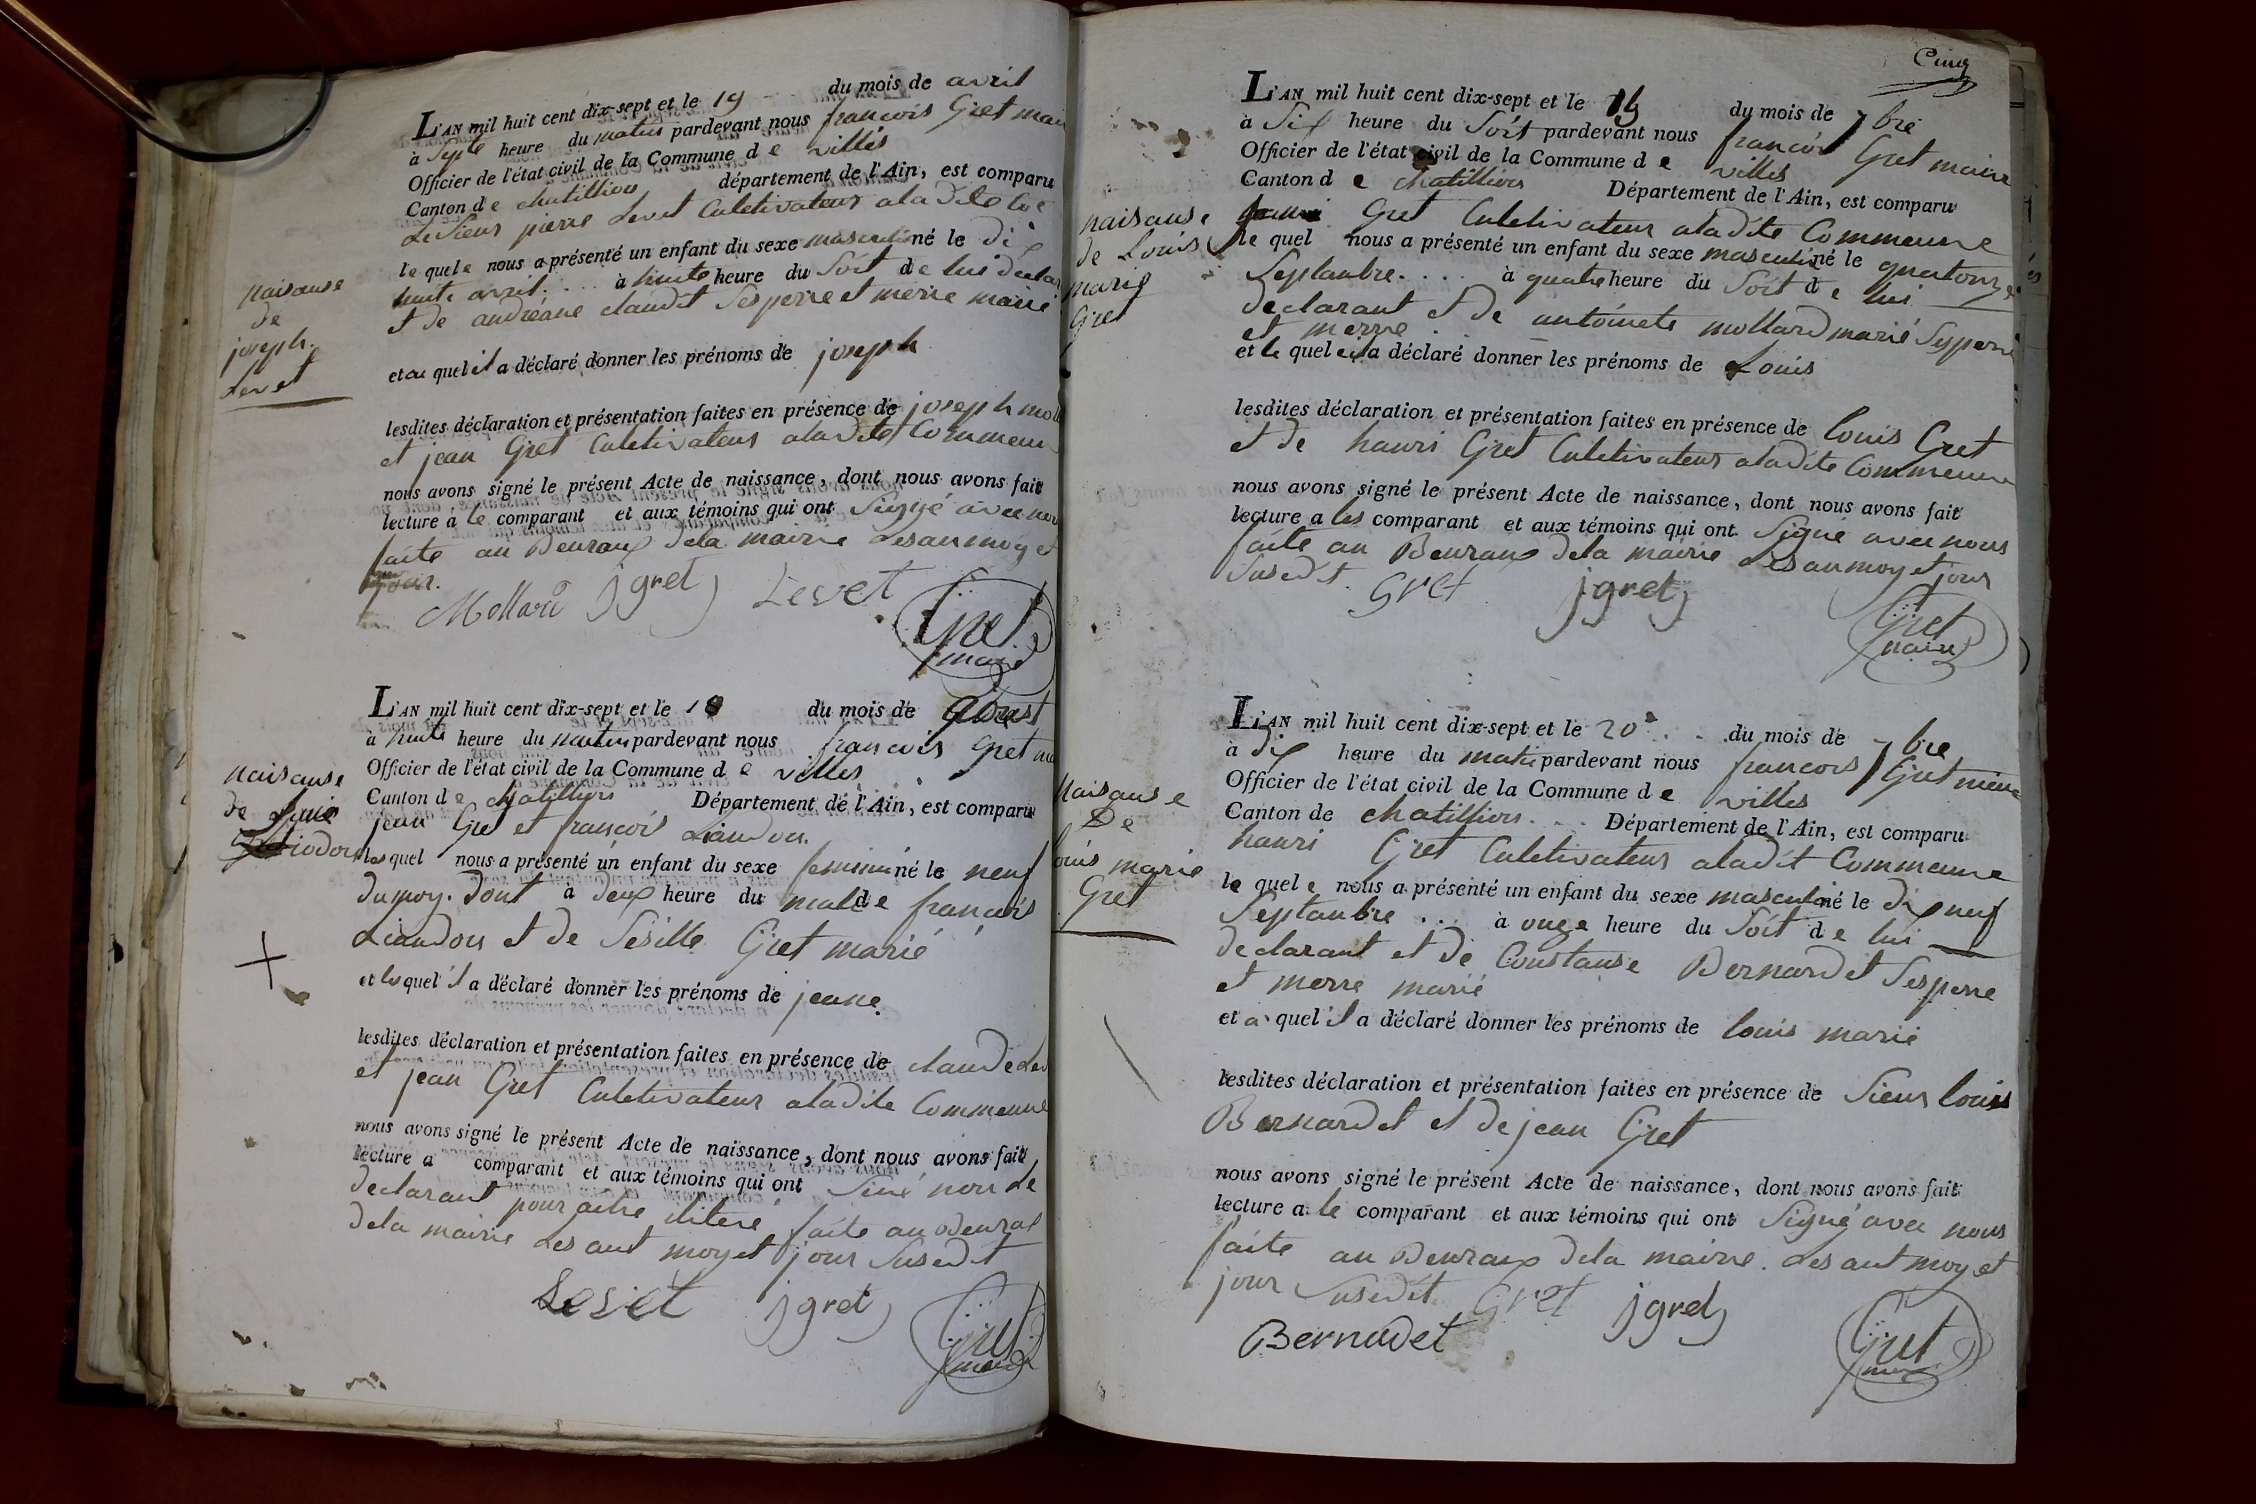 L'AN mil huit cent dix-sept et le 19 du mois de avril
à septe heure du matin pardevant nous francois Gret mair
Officier de l'état civil de la Commune d e villes
Canton d e chatillion département de l'Ain, est comparu
Le Sieur pierre Levet Culetivateur aladite Co
le quel e nous a présenté un enfant du sexe masculin né le dix
huite avril . . . à huite heure du Soit d e lui declar
et de andréane claudet Ses perre et merre marié
et au quel il a déclaré donner les prénoms de joseph
lesdites déclaration et présentation faites en présence de joseph mol
et jean Gret Culetivateur aladite Commeun
nous avons signé le présent Acte de naissance, dont nous avons fait
lecture a le comparant et aux témoins qui ont Signé avec nou
faite au Beuraux dela mairie Lesanmoy et
jour.
Mollard jgret Levet
Gret
maire
naisanse
de
joseph
Levet
L'AN mil huit cent dix-sept et le 10 du mois de aoust
à huite heure du matin pardevant nous francois Gret ma
Officier de l'état civil de la Commune d e villes
Canton d e chatillion Département de l'Ain, est comparu
jean Gret et francois Liaudon
les quel nous a présenté un enfant du sexe feminin né le neuf
du moy. Dont à deux heure du mat d e francois
Liaudon et de Sesille Gret marié
et les quel il a déclaré donner les prénoms de jeane.
lesdites déclaration et présentation faites en présence de claude Lev
et jean Gret Culetivateur aladite Commeune
nous avons signé le présent Acte de naissance, dont nous avons fait
lecture a comparant et aux témoins qui ont Siné non le
declarant pour aitre ilitere faite au Beurau
dela mairie Les ant moy et jour Susedit
Levet jgret
Gret
maire
naisanse
de
Cinq
L'AN mil huit cent dix-sept et le 15 du mois de 7bre
à Six heure du Soit pardevant nous francois Gret maire
Officier de l'état civil de la Commune d e villes
Canton d e chatillion Département de l'Ain, est comparu
Gret Culetivateur aladite Commeune
le quel nous a présenté un enfant du sexe masculin né le quatorze
Septanbre. . . . à quatre heure du Soit d e lui
declarant et de antoinete mollard marié Syperre
et merre
et le quel il a déclaré donner les prénoms de Louis
lesdites déclaration et présentation faites en présence de louis Gret
et de hanri Gret Culetivateur aladite Commeune
nous avons signé le présent Acte de naissance, dont nous avons fait
lecture a les comparant et aux témoins qui ont Signé avec nous
faite au Beuraux dela mairie Lesanmoy et jour
Susedit Gret jgret
Gret
maire
naisanse
de Louis
marie
Gret
L'AN mil huit cent dix-sept et le 20 du mois de 7bre
à Dix heure du matin pardevant nous francois Gret maire
Officier de l'état civil de la Commune d e villes
Canton de chatillion . . . Département de l'Ain, est comparu
hanri Gret Culetivateur aladit Commeune
le quel e nous a présenté un enfant du sexe masculin né le dix neuf
Septanbre . . . à onze heure du Soit d e lui
declarant et de Constanse Bernardet Ses perre
et merre marié
et a quel il a déclaré donner les prénoms de louis marie
lesdites déclaration et présentation faites en présence de Sieur louis
Bernardet et de jean Gret
nous avons signé le présent Acte de naissance, dont nous avons fait
lecture a le comparant et aux témoins qui ont Signé avec nous
faite au Beuraux dela mairie. Les ant moy et
jour Susedit Gret jgret
Bernadet
Gret
maire
naisanse
De
louis marie
Gret